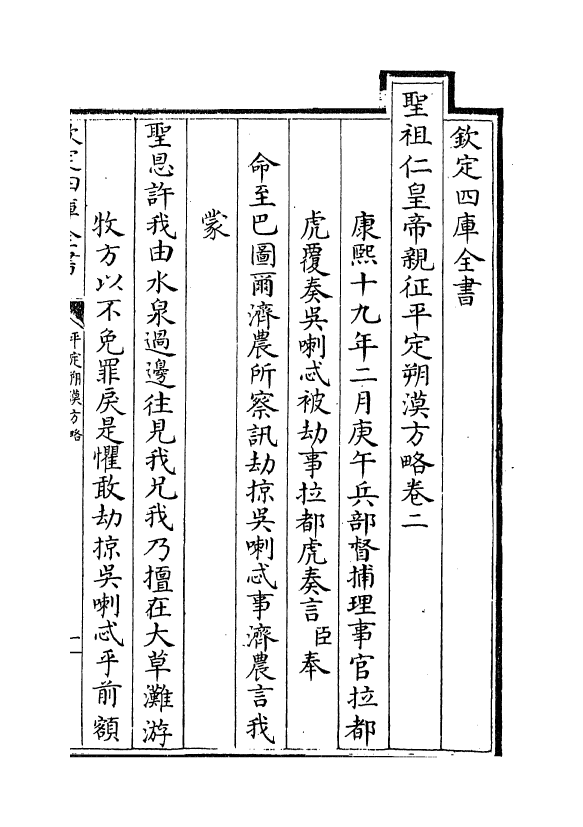 欽定四庫全書
聖祖仁皇帝親征平定朔漠方略卷二
康熙十九年二月庚午兵部督捕理事官拉都
虎覆奏吳喇忒被劫事拉都虎奏言臣奉
命至巴圖爾濟農所察訊劫掠吳喇忒事濟農言我
蒙
聖恩許我由水泉過邊往見我兄我乃擅在大草灘游
牧方以不免罪戾是懼敢劫掠吳喇忒乎前額
欽定四庫全書
平定朔漠方略
一